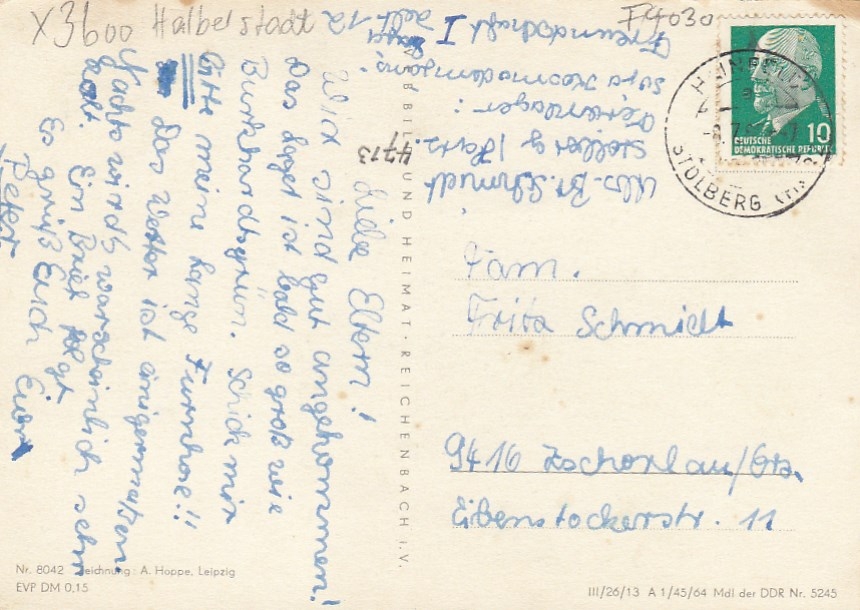 X3600 Halberstadt
F14030
Liebe Eltern!
Wir sind gut angekommen!
Das Lager ist bald so groß wie
Burkhardtsgrün. Schick mir
bitte meine lange Turnhose!!
Das Wetter ist einigermaßen.
Nachts wird's warscheinlich sehr
kalt. Ein Brief folgt
Es grüßt Euch Euer
Peter
4713
Abs. P. Schmidt
Stolberg/Harz
Ferienlager:
Soja Kosmodemjans-
kaja
Freundschaft I
Zelt 12
BILD UND HEIMAT · REICHENBACH I. V.
DEUTSCHE
DEMOKRATISCHE REPUBLIK
10
STOLBERG
Fam.
Fritz Schmidt
9416 Zschorlau/Erz.
Eibenstockerstr. 11
Nr. 8042 Zeichnung: A. Hoppe, Leipzig
EVP DM 0,15
III/26/13 A 1/45/64 MdI der DDR Nr. 5245